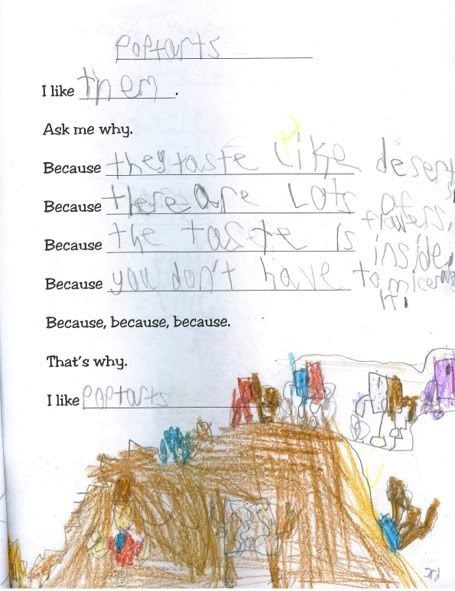 poptarts
I like them.
Ask me why.
Because they taste like desert
Because there are Lots of flavers.
Because the taste is inside
Because you don't have to it.
Because, because, because.
That's why.
I like poptarts